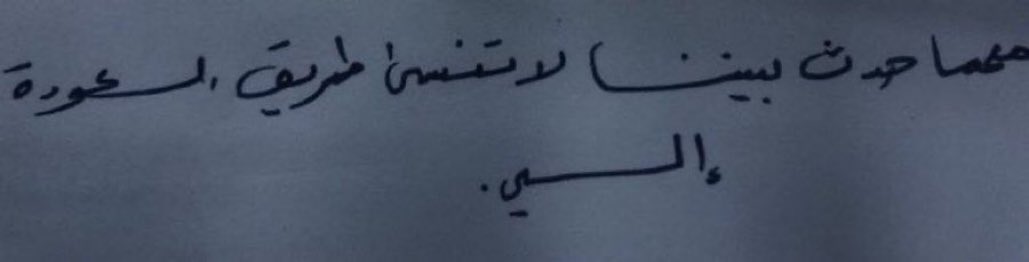 مهما حدث بيننا لا تنسى طريق العودة
إلي.